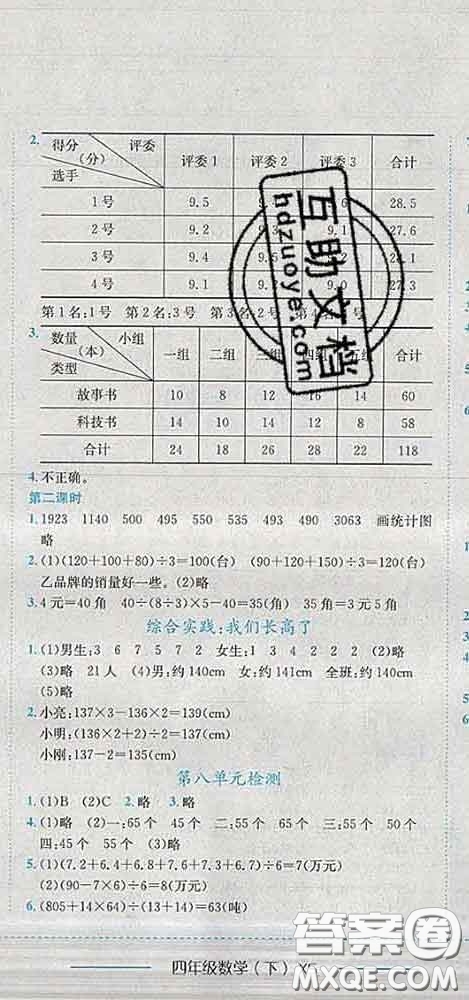 2.
得分(分) 评委 选手 评委1 评委2 评委3 合计
1号 9.5 28.5
2号 9.2 27.6
3号 9.4 28.1
4号 9.1 9.0 27.3
第1名:1号 第2名:3号 第3名:2号 第4名:4号
3.
数量(本) 小组 类型 一组 二组 三组 四组 五组 合计
故事书 10 8 12 16 14 60
科技书 14 10 14 12 8 58
合计 24 18 26 28 22 118
4.不正确。
第二课时
1.1923 1140 500 495 550 535 493 490 3063 画统计图
略
2.(1)(120+100+80)÷3=100(台) (90+120+150)÷3=120(台)
乙品牌的销量好一些。(2)略
3.4元=40角 40÷(8÷3)×5-40=35(角) 35角=3元5角
综合实践:我们长高了
1.(1)男生:3 6 7 5 7 2 女生:1 3 4 2 2 2 (2)略
(3)略 21人 (4)男:约140cm 女:约141cm 全班:约140cm
(5)略
2.小亮:137×3-136×2=139(cm)
小明:(136×2+2)÷2=137(cm)
小刚:137×2-139=135(cm)
第八单元检测
1.(1)B (2)C 2.略 3.略
4.(1)略 (2)一:65个 45个 二:60个 65个 三:55个 50个
四:45个 55个 (3)略
5.(1)(7.2+6.4+6.8+7.6+7.3+6.7)÷6=7(万元)
(2)(90-7×6)÷6=8(万元)
6.(805+14×64)÷(13+14)=63(吨)
四年级数学(下)
互助文档
hdzuoye.com
答案圈
MXQE.COM